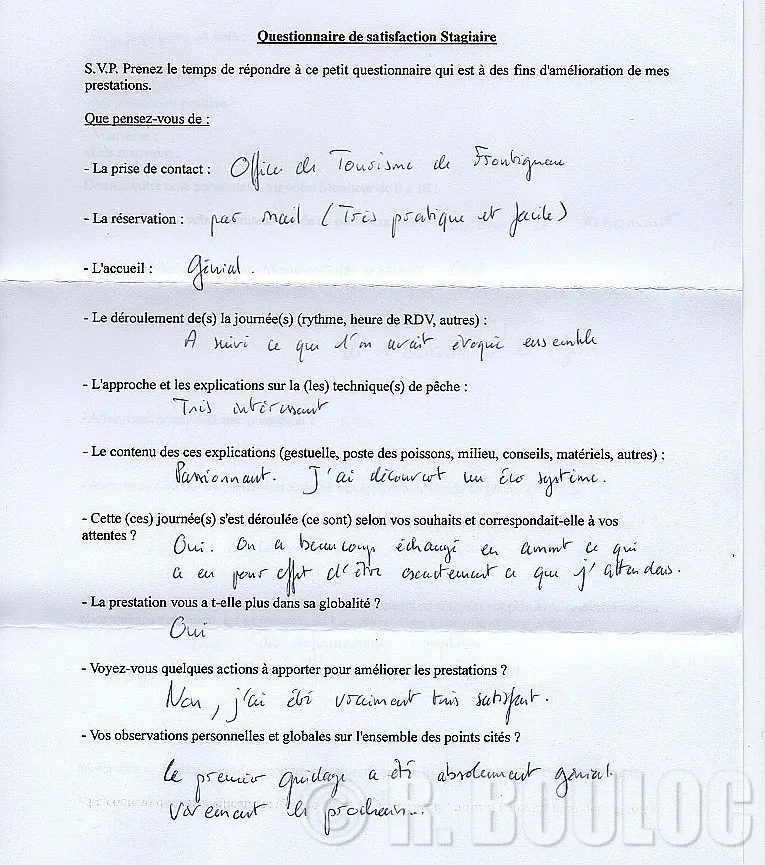 Questionnaire de satisfaction Stagiaire
S.V.P. Prenez le temps de répondre à ce petit questionnaire qui est à des fins d'amélioration de mes
prestations.
Que pensez-vous de :
- La prise de contact : Office de Tourisme de Frontignan
- La réservation : par mail (Très pratique et facile)
- L'accueil : Génial.
- Le déroulement de(s) la journée(s) (rythme, heure de RDV, autres) :
A suivi ce que l'on avait évoqué ensemble
- L'approche et les explications sur la (les) technique(s) de pêche :
Très intéressant
- Le contenu des ces explications (gestuelle, poste des poissons, milieu, conseils, matériels, autres) :
Passionnant. J'ai découvert un éco système.
- Cette (ces) journée(s) s'est déroulée (ce sont) selon vos souhaits et correspondait-elle à vos
attentes ? Oui. On a beaucoup échangé en amont ce qui
a eu pour effet d'être exactement ce que j'attendais.
- La prestation vous a t-elle plus dans sa globalité ?
Oui
- Voyez-vous quelques actions à apporter pour améliorer les prestations ?
Non, j'ai été vraiment très satisfait.
- Vos observations personnelles et globales sur l'ensemble des points cités ?
Le premier guidage a été absolument génial.
Vivement le prochain...
© R. BOULOC